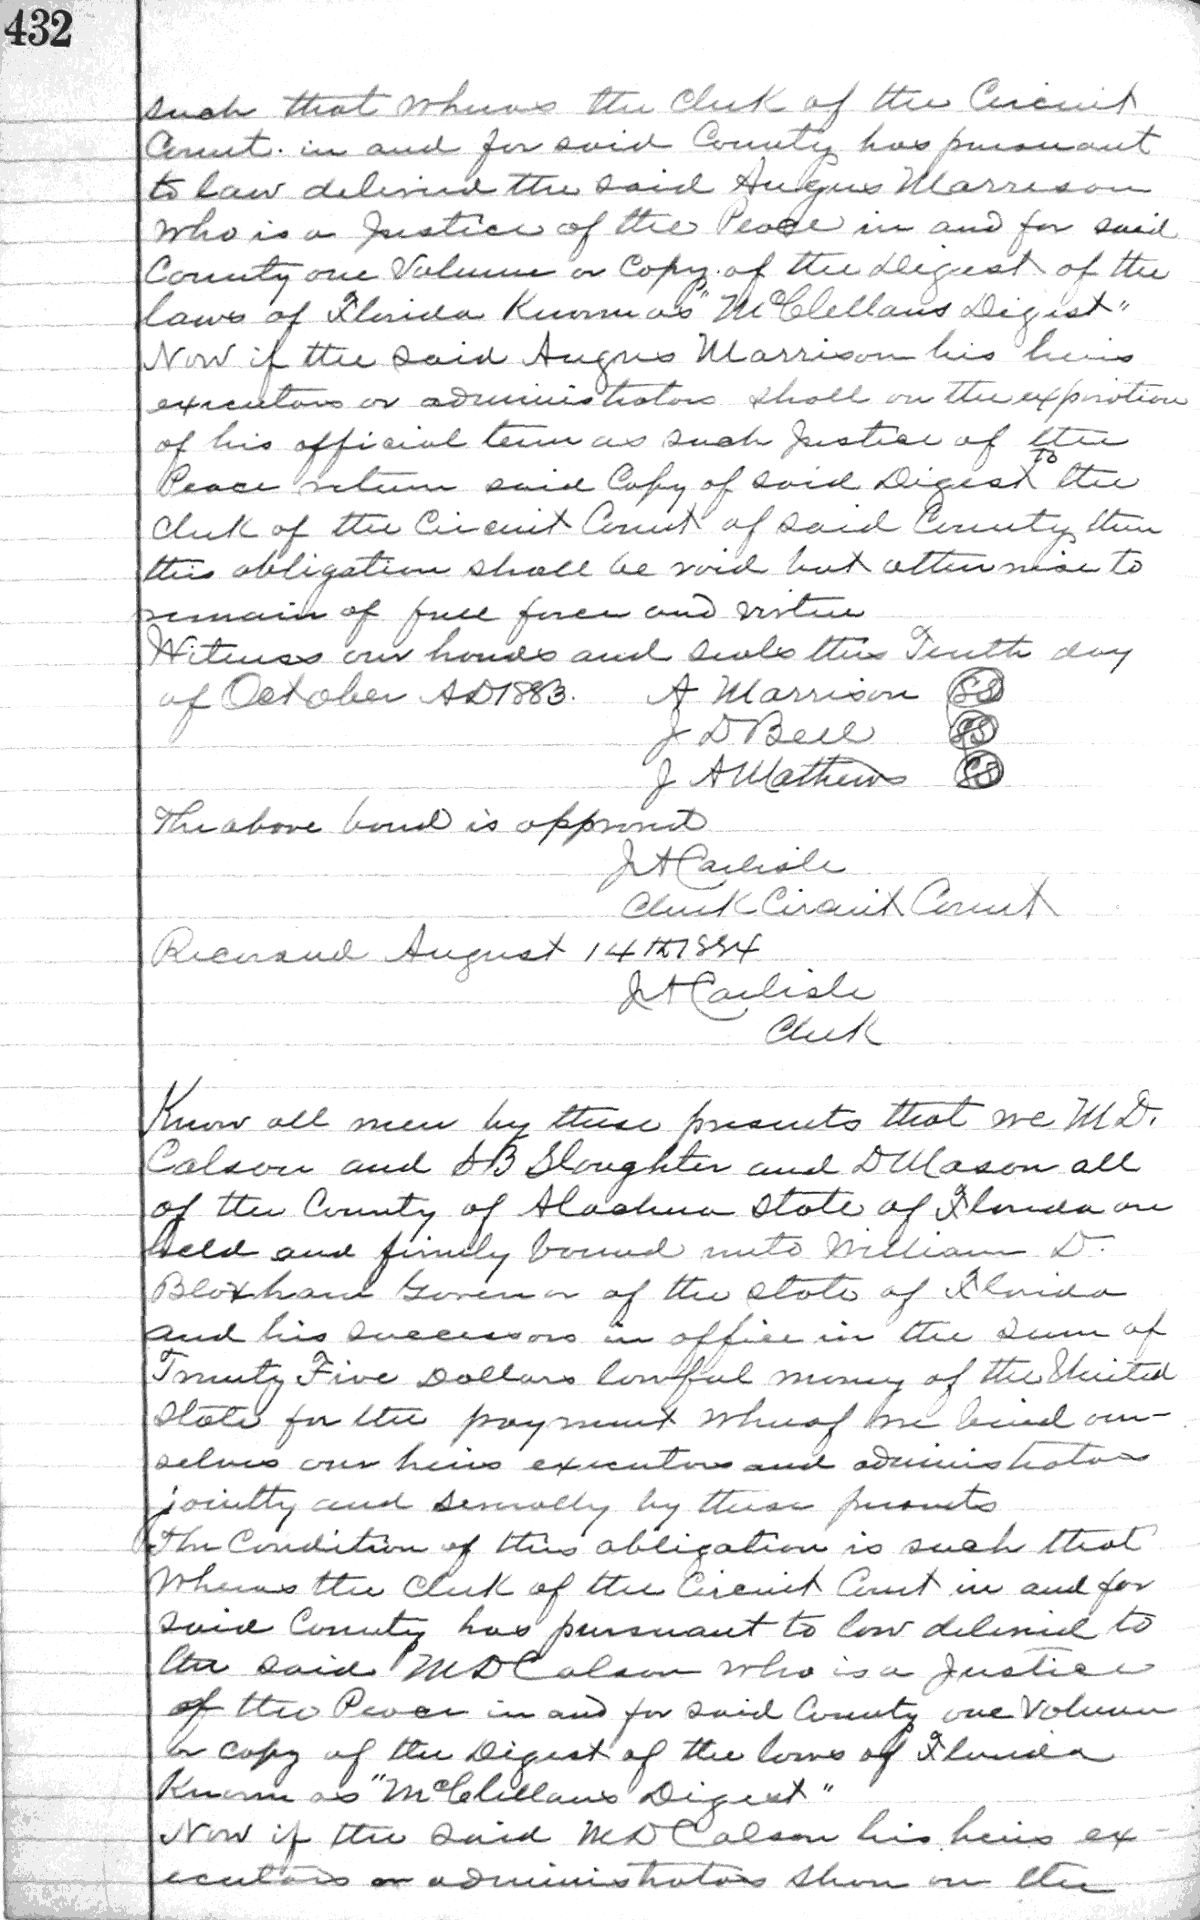 432
such that whereas the Clerk of the Circuit
Court. in and for said County has pursuant
to law delivered the said Angus Marrison
who is a Justice of the Peace in and for said
County one Volume or Copy of the Digest of the
laws of Florida Known as "McClellans Digest"
Now if the said Angus Marrison his heirs
executors or administrators shall on the expiration
of his official term as such Justice of the
Peace return said Copy of said Digest to the
Clerk of the Circuit Court of said County then
this obligation shall be void but otherwise to
remain of full force and virtue
Witness our hands and seals this Tenth day
of October AD 1883. A Marrison LS
J D Bell LS
J A Mathews LS
The above bond is approved
J A Carlisle
Clerk Circuit Court
Recorded August 14th 1884
J A Carlisle
Clerk
Know all men by these presents that we M D.
Colson and S B Sloughter and D Mason all
of the County of Alachua State of Florida are
held and firmly bound unto William D.
Bloxham Governor of the State of Florida
and his successors in office in the sum of
Twenty Five Dollars lawful money of the United
State for the payment whereof we bind our-
selves our heirs executors and administrators
jointly and severally by these presents
The Condition of this obligation is such that
Whereas the Clerk of the Circuit Court in and for
said County has pursuant to law delivered to
the said M D Colson who is a Justice
of the Peace in and for said County one Volume
or copy of the Digest of the laws of Florida
Known as "McClellans Digest"
Now if the said M D Colson his heirs ex-
ecutors or administrators on the